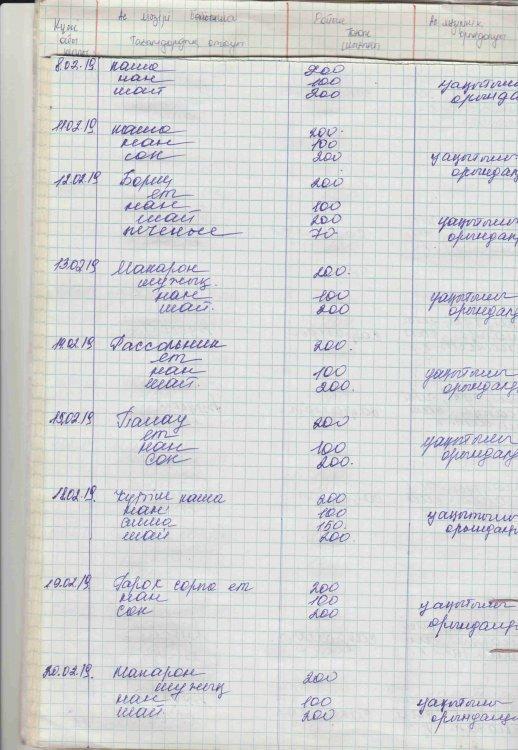 Күн
айы
Ас мәзірі бойынша
Тағамдардың атауы
Ас мәзірінің
орындалуы
8.02.19 каша 200
нан 100 уақытылы
шай 200 орында
11.02.19 каша 200
нан 100
сок 200 уақытылы
орындал
12.02.19 Борщ 200
ет
нан 100
шай 200 уақытылы
печенье 70 орындал
13.02.19 Макарон 200
шұжық
нан 100 уақытылы
шай 200 орындал
14.02.19 Рассольник 200
ет
нан 100 уақытылы
шай 200 орындал
15.02.19 Палау 200
ет
нан 100 уақытылы
сок 200 орындал
18.02.19 Күріш каша 200
нан 100 уақытылы
алма 150
шай 200 орындал
19.02.19 Горох сорпа ет 200
нан 100 уақытылы
сок 200 орындалд
20.02.19 Макарон 200
шұжық
нан 100 уақытылы
шай 200 орындалд